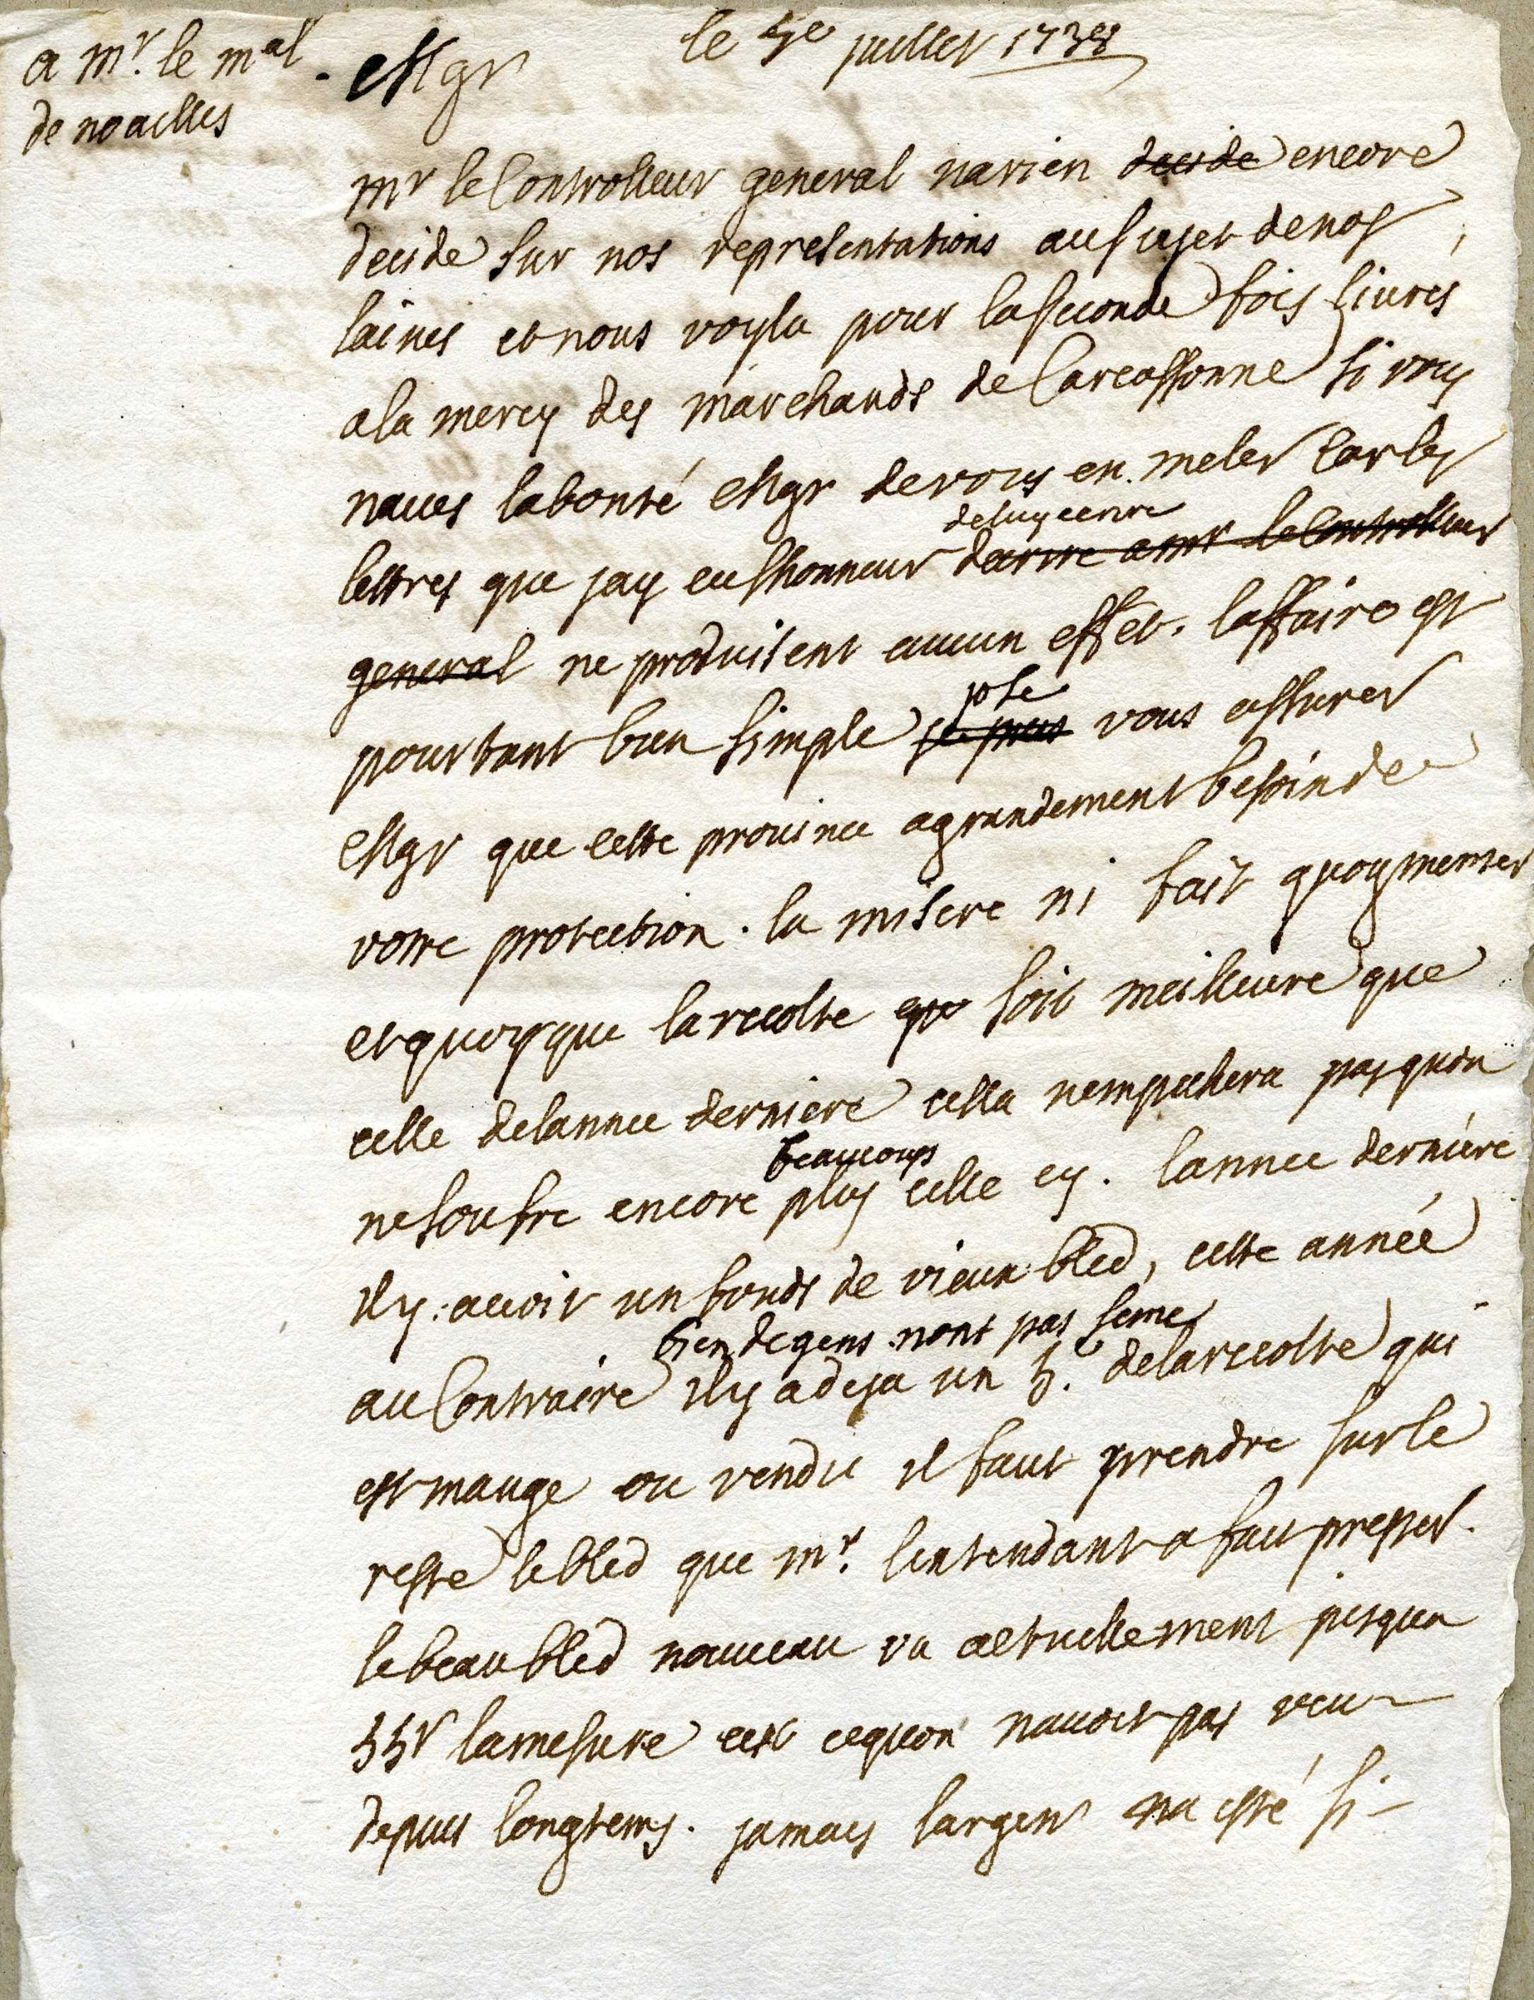 a mr. le mal
de noailles
Mgr
le 5e juillet 1738
mr le Controlleur general na rien decide encore
decide sur nos representations au sujet de nos
laines et nous voyla pour la seconde fois livrés
a la mercy des marchands de Carcassonne si vous
naues la bonté Mgr de vous en meler Car les
de luy ecrire
lettres que jay eu lhonneur decrire a mr le Controlleur
general ne produisent aucun effet. laffaire est
jose
pourtant bien simple je puis vous assurer
Mgr que cette prouince a grandement besoin de
votre protection. la misere ni fait quaugmenter
et quoyque la recolte que soit meilleure que
celle de lannee derniere cella nempechera pas quon
beaucoups
ne soufre encore plus celle cy. lannee derniére
il y auoit un fonds de vieux bled, cette année
bien de gens nont pas semé
au Contraire il y a deja un 5.e de la recolte qui
est mange ou vendu il faut prendre sur le
reste le bled que mr. lintendant a fait prester.
le beau bled nouveau va actuellement jusqua
55 la mesure cest ce quon nauoit pas veu
depuis longtems. jamais largent na esté si